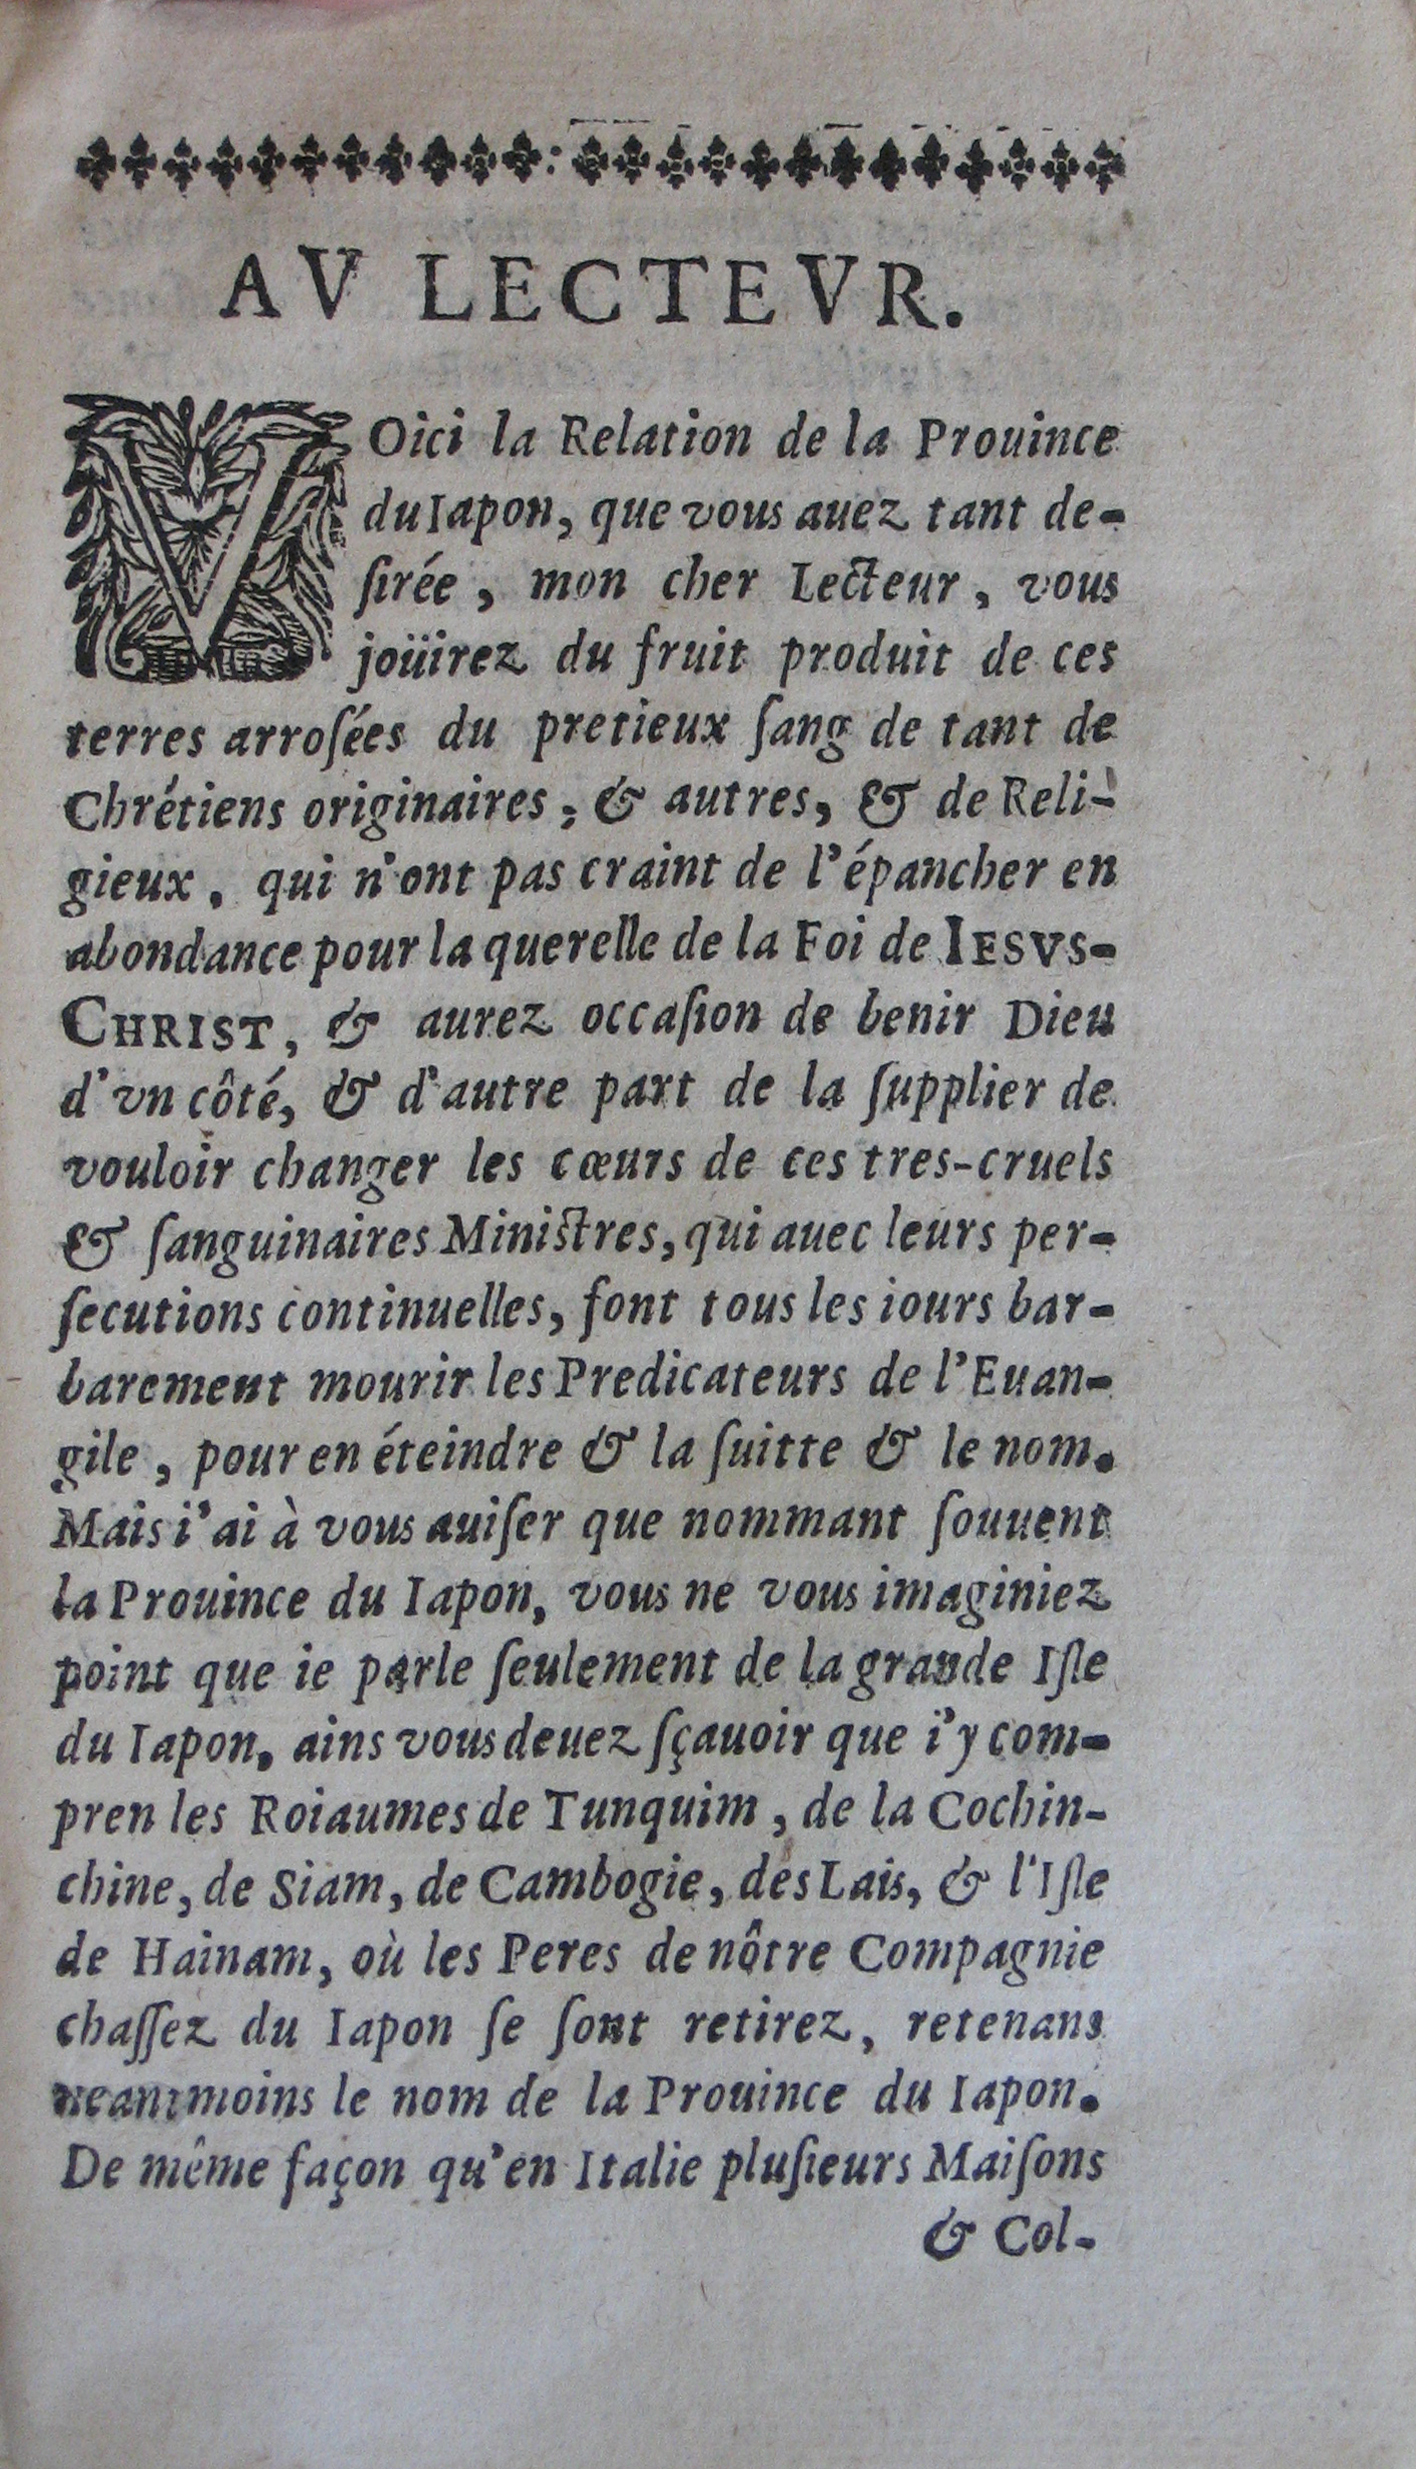 AV LECTEVR.
VOici la Relation de la Prouince
du Iapon, que vous auez tant de-
ſirée, mon cher Lecteur, vous
joüirez du fruit produit de ces
terres arroſées du pretieux ſang de tant de
Chrétiens originaires, & autres, & de Reli-
gieux, qui n'ont pas craint de l'épancher en
abondance pour la querelle de la Foi de IESVS-
CHRIST, & aurez occaſion de benir Dieu
d'vn côté, & d'autre part de la ſupplier de
vouloir changer les cœurs de ces tres-cruels
& ſanguinaires Miniſtres, qui auec leurs per-
ſecutions continuelles, font tous les iours bar-
barement mourir les Predicateurs de l'Euan-
gile, pour en éteindre & la ſuitte & le nom.
Mais i'ai à vous auiſer que nommant ſouuent
la Prouince du Iapon, vous ne vous imaginiez
point que ie parle ſeulement de la grande Iſle
du Iapon, ains vous deuez ſçauoir que i'y com-
pren les Roiaumes de Tunquim, de la Cochin-
chine, de Siam, de Cambogie, des Lais, & l'Iſle
de Hainam, où les Peres de nôtre Compagnie
chaſſez du Iapon ſe ſont retirez, retenans
neantmoins le nom de la Prouince du Iapon.
De même façon qu'en Italie pluſieurs Maiſons
& Col-